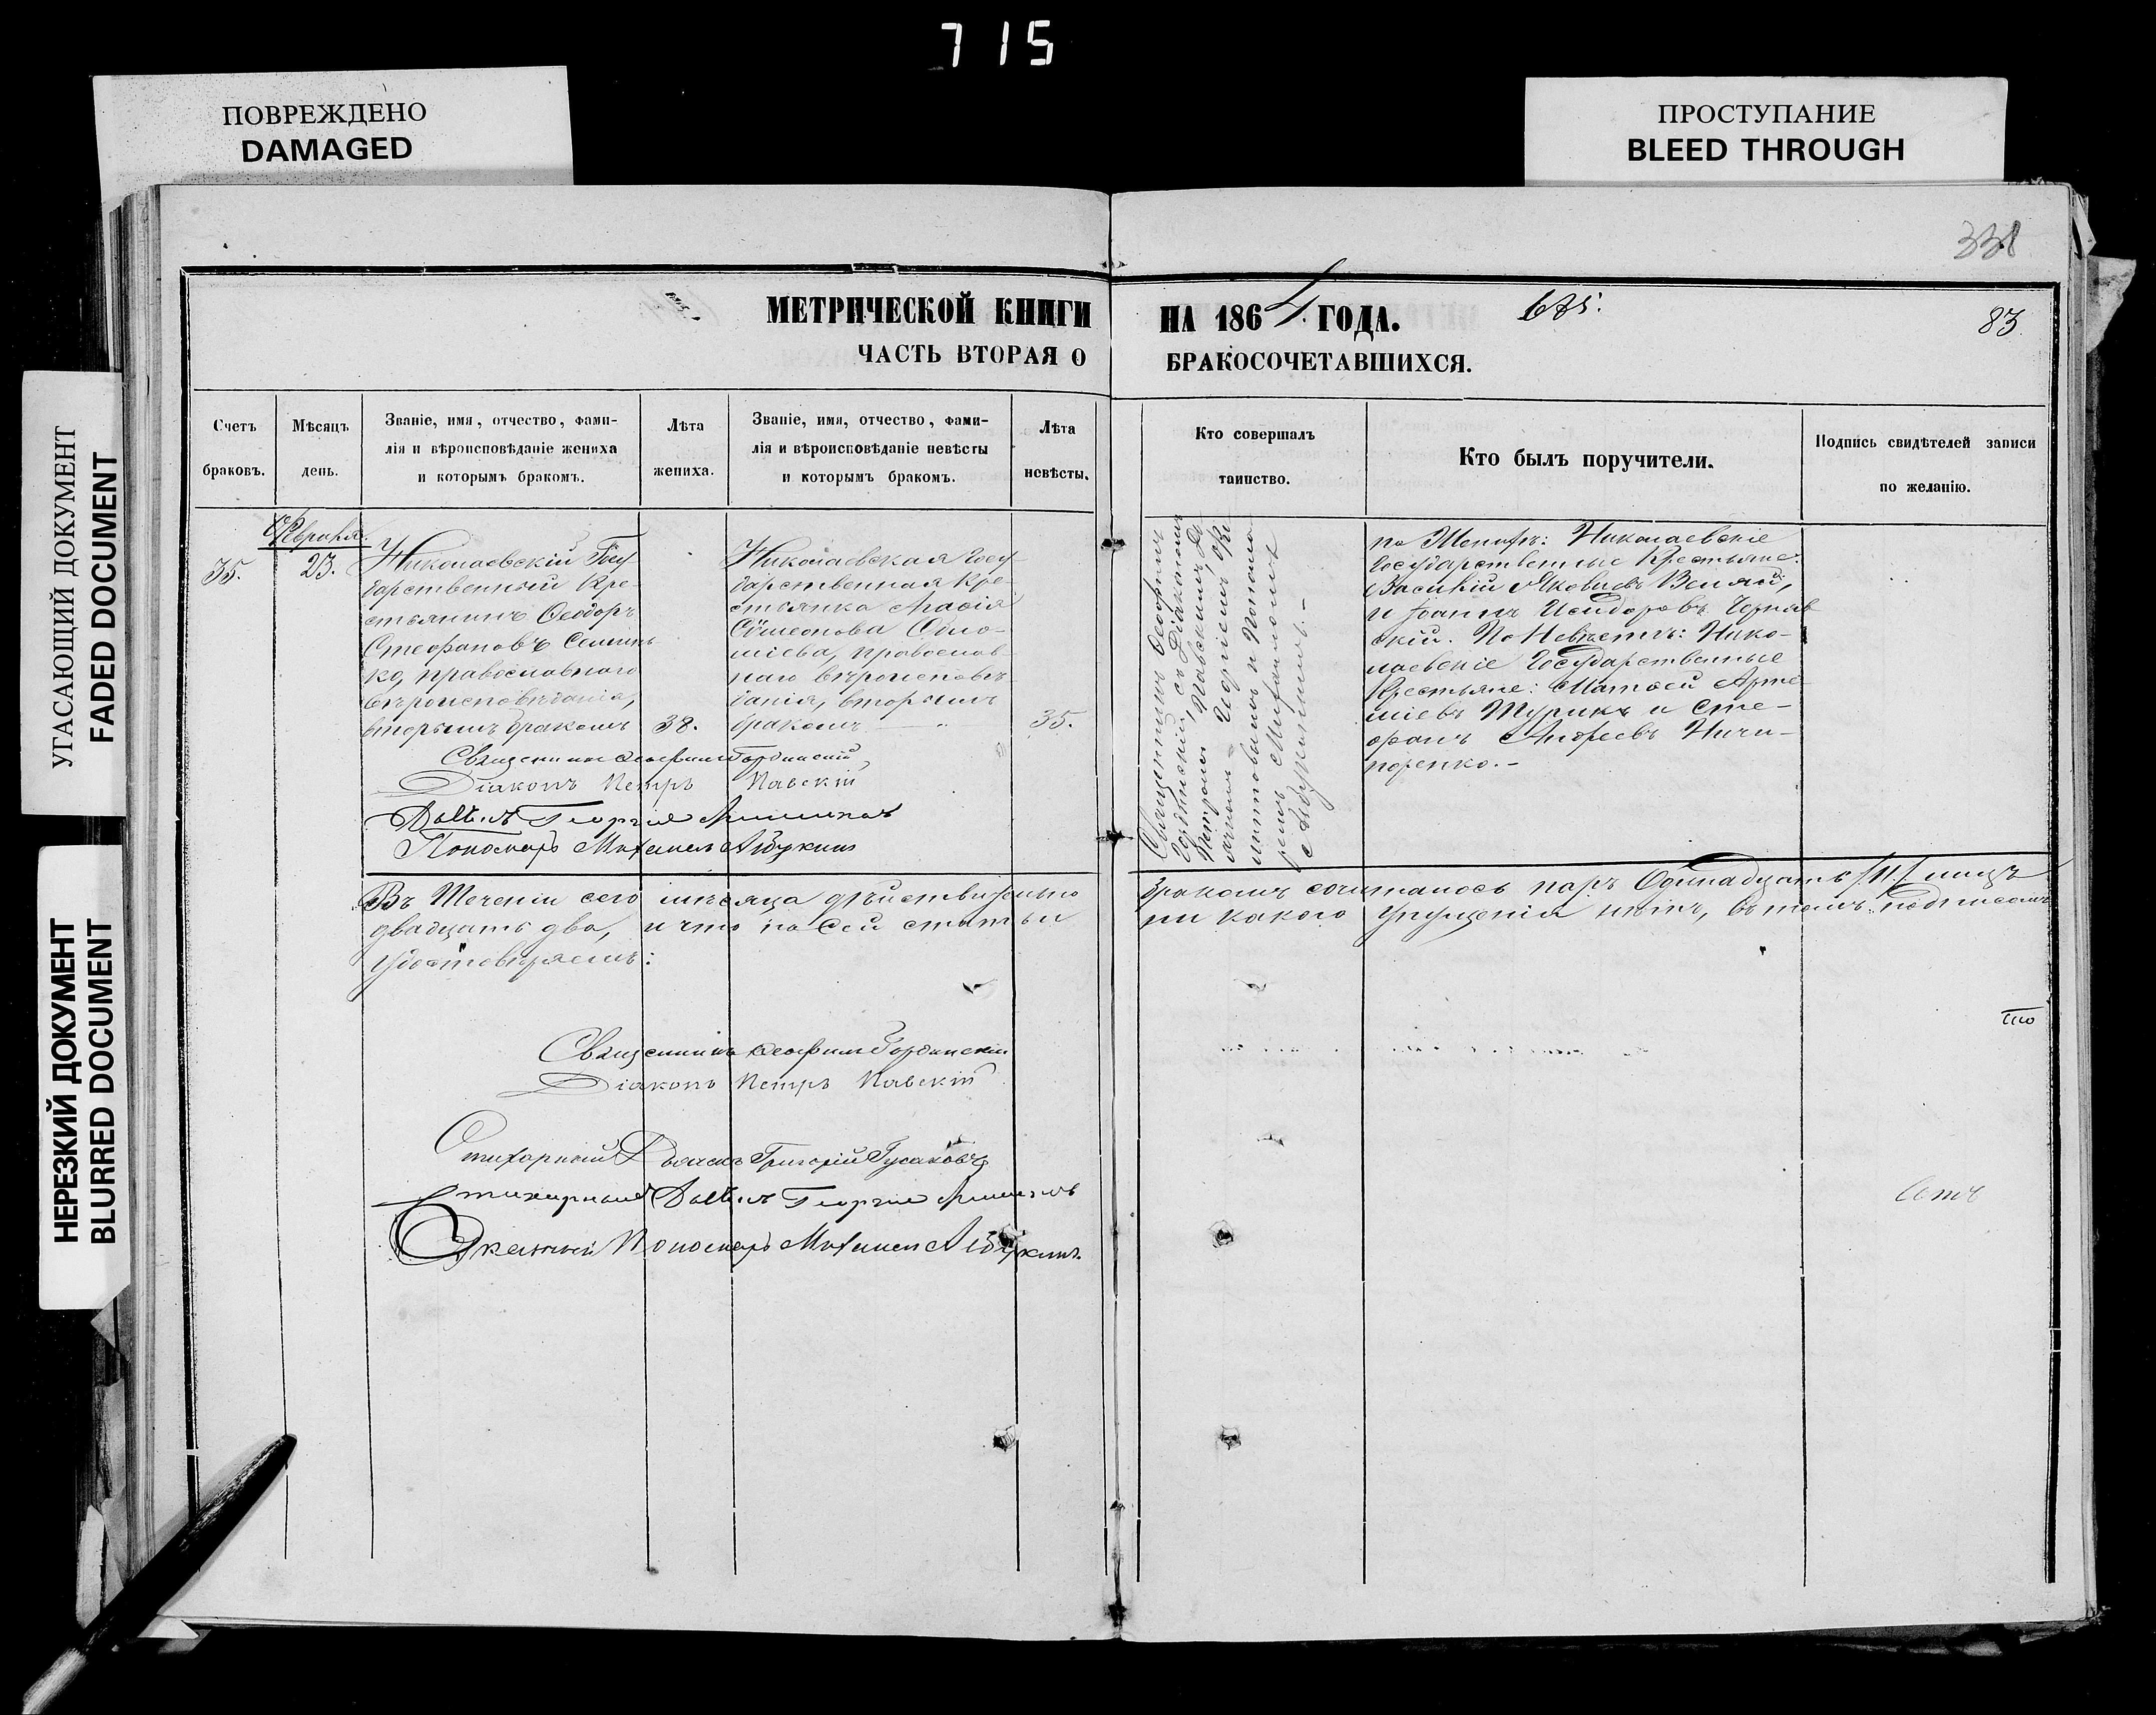 715
ПОВРЕЖДЕНО
DAMAGED
ПРОСТУПАНИЕ
BLEED THROUGH
УГАСАЮЩИЙ ДОКУМЕНТ
FADED DOCUMENT
НЕРЕЗКИЙ ДОКУМЕНТ
BLURRED DOCUMENT
338
МЕТРИЧЕСКОЙ КНИГИ НА 1864 ГОДА.
83.
ЧАСТЬ ВТОРАЯ О БРАКОСОЧЕТАВШИХСЯ.
Счетъ браковъ.
Мѣсяцъ день.
Званіе, имя, отчество, фами-
лія и вѣроисповѣданіе жениха
и которымъ бракомъ.
Лѣта жениха.
Званіе, имя, отчество, фами-
лія и вѣроисповѣданіе невѣсты
и которымъ бракомъ.
Лѣта невѣсты.
Кто совершалъ
таинство.
Кто былъ поручители.
Подпись свидѣтелей записи
по желанію.
35.
Февраля.
23.
Николаевскій Госу
дарственный Кре-
стьянинъ Ѳеодоръ
Стефановъ
православнаго
вѣроисповѣданія,
вторымъ бракомъ
38.
Николаевская Госу
дарственная Кре-
стьянка
Сѵмеонова
православ
наго вѣроисповѣ
данія, вторымъ
бракомъ
35.
Священникъ Ѳеофилъ
Гординскій, съ Діакономъ
Петромъ Павскимъ, Дь
ячкомъ Георгіемъ
и Понома
ремъ Михаиломъ
Азбукинымъ.-
по Женихѣ: Николаевскіе
Государственные Крестьяне:
Василій Яковлевъ
и Іоаннъ Исидоровъ Черняв
скій. По Невѣстѣ: Нико-
лаевскіе Государственные
Крестьяне: Матѳей Арте
міевъ Турикъ и Сте-
фанъ Андреевъ Ничи-
поренко.-
Священникъ Ѳеофилъ Гординскій,
Діаконъ Петръ Павскій
Дьячекъ Георгій
Пономарь Михаилъ Азбукинъ
Въ Теченіи сего мѣсяца дѣйствительно бракомъ сочеталось паръ Одинадцать /11/ лицъ
двадцать два, и что по сей статьи ни какого упущенія нѣтъ, въ томъ подписомъ
удостовѣряемъ:
Священникъ Ѳеофилъ Гординскій
Діаконъ Петръ Павскій
Стихарный Дьячекъ Григорій Гусаковъ
Стихарный Дьячекъ Георгій
Указный Пономарь Михаилъ Азбукинъ.